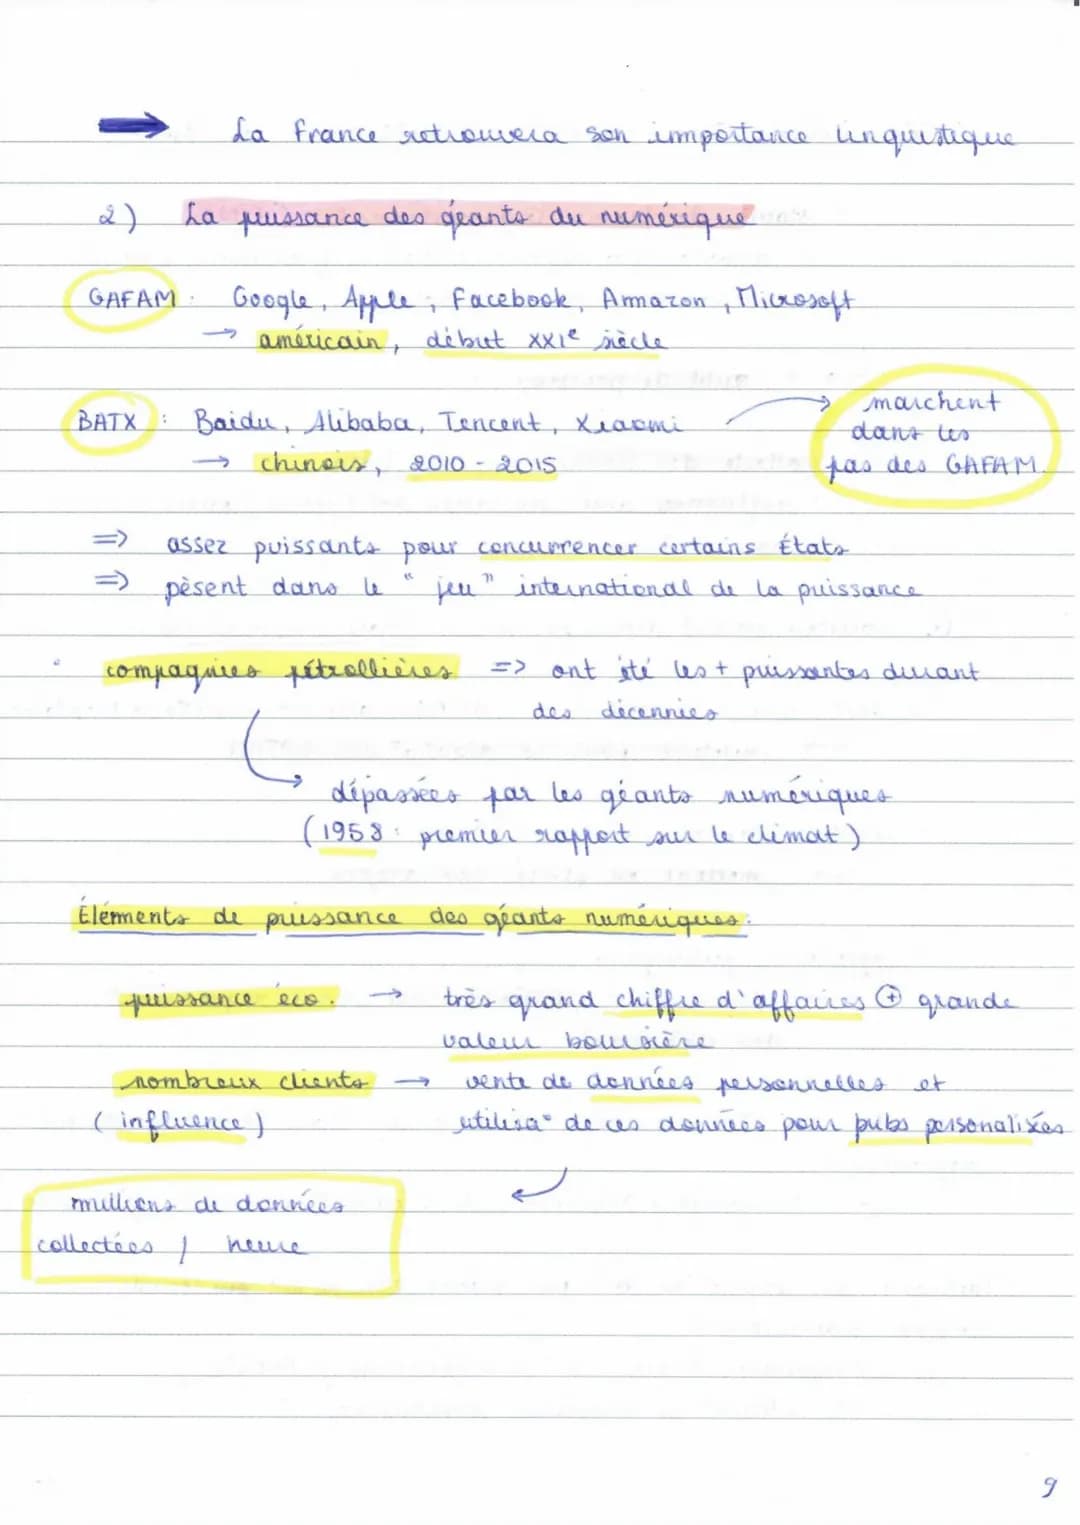 La France retrouvera son importance linguistique
2) La puissance des géants du numérique
GAFAM : Google, Apple, Facebook, Amazon, Microsoft
→ américain, début XXIe siècle
BATX : Baidu, Alibaba, Tencent, Xiaomi → marchent
dans les
→ chinois, 2010 - 2015
pas des GAFAM.
=> assez puissants pour concurrencer certains États
=> pèsent dans le "jeu" international de la puissance
compagnies pétrollières => ont été les + puissantes durant
des décennies
dépassées par les géants numériques
(1958 : premier rapport sur le climat)
Éléments de puissance des géants numériques :
puissance éco. → très grand chiffre d'affaires ⊕ grande
valeur boursière
nombreux clients → vente de données personnelles et
(influence) utilisa° de ces données pour pubs personalisés
millions de données
collectées / heure
9